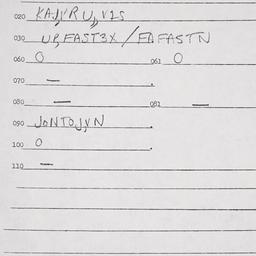 020 KAJ,YR U,,V2S
030 UP,FAST3X/FD,FASTN
060 0 061 0
070 — .
080 — 081 —
090 JONTOJ,VN .
100 0 .
110 —